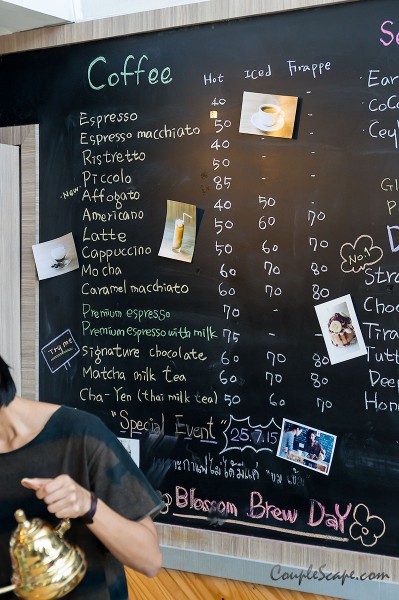 Coffee Hot Iced Frappe
Espresso 40 -
Espresso macchiato 50 -
Ristretto 40 - -
Piccolo 50 - -
NEW Affogato 85 - -
Americano 40 50 -
Latte 50 60 70
Cappuccino 50 60 70
Mocha 60 70 80
Caramel macchiato 60 70 80
Premium espresso 70 - -
Premium espresso with milk 75 - -
Signature chocolate 60 70 80
Matcha milk tea 60 70 80
Cha-Yen (thai milk tea) 50 60 80
Try me
"Special Event" 25.7.15
Blossom Brew Day
Se
Ear
CoCo
Ceyl
No.1
Stra
Choc
Tira
Tutt
Deep
Hon
CoupleScape.com